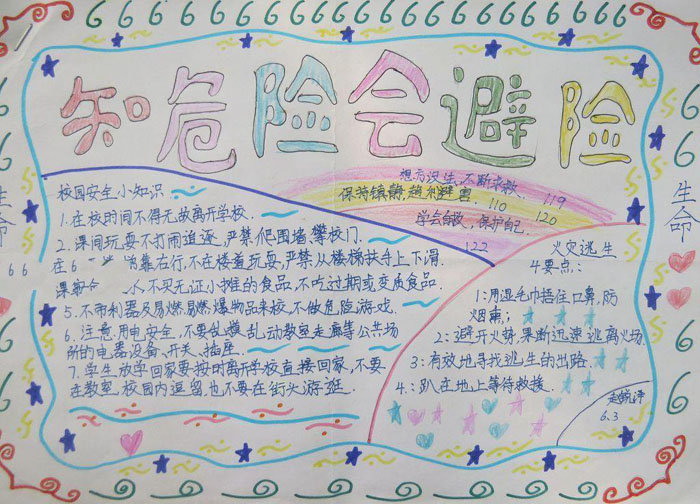 知危险会避险
生命
生命
校园安全小知识
1.在校时间不得无故离开学校.
2.课间玩耍不打闹追逐,严禁爬围墙、攀校门.
靠右行,不在楼道玩耍,严禁从楼梯扶手上下滑.
不买无证小摊的食品,不吃过期或变质食品.
5.不带利器及易燃易燃爆物品来校,不做危险游戏.
6.注意用电安全,不要乱摸乱动教室走廊等公共场
所的电器设备、开关、插座.
7.学生放学回家要按时离开学校直接回家,不要
在教室、校园内逗留,也不要在街头游逛.
不断求救. 119
保持镇静,趋利避害. 110 120
学会自救,保护自己.
122
火灾逃生
4要点:
1:用湿毛巾捂住口鼻,防
烟熏;
2:避开火势,果断迅速逃离火场
3:有效地寻找逃生的出路.
4:趴在地上等待救援.
6.3